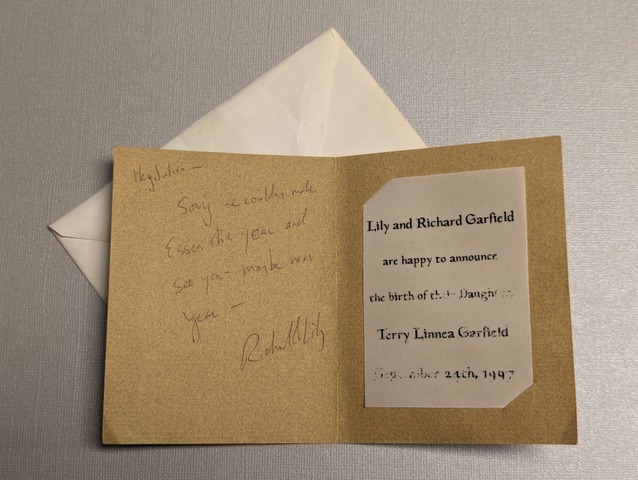 Sorry we couldn't make
Essen this year and
see you - maybe next
year -
Richard & Lily
Lily and Richard Garfield
are happy to announce
the birth of their Daughter,
Terry Linnea Garfield
September 24th, 1997